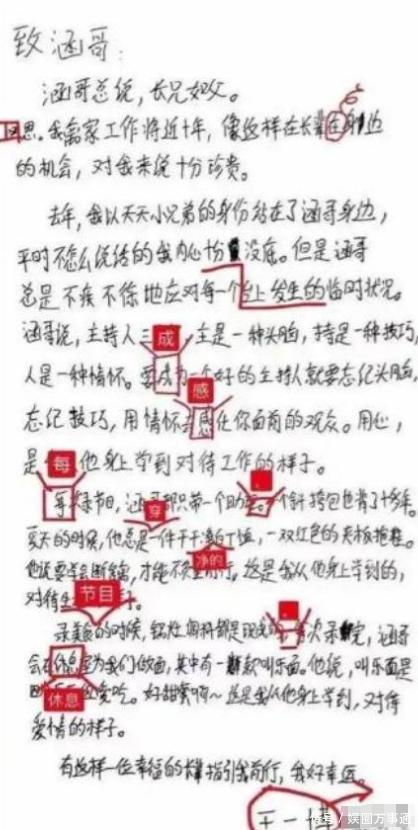 致涵哥：
涵哥总说，长兄如父。
思。我离家工作将近十年，像这样在长辈在身边
的机会，对我来说十分珍贵。
去年，我以天天小兄弟的身份站在了涵哥身边，
平时不怎么说话的我内心十分没底。但是涵哥
总是不疾不徐地应对每一个台上发生的临时状况。
涵哥说，主持人三 成 ，主是一种头脑，持是一种技巧，
人是一种情怀。要成为一个好的主持人就要忘记头脑， 感
忘记技巧，用情怀去感化你面前的观众。用心，
是 每 他身上学到对待工作的样子。
录节目，涵哥都只带一个助 一个斜挎包也背了十多年。
穿
夏天的时候，他总是一件干干 白T恤，一双红色的夹板拖鞋。
净的
他说要学会断舍离，才能不 前行。这是我从他身上学到的，
对待 节目
录美食的时候，锅灶调料都是 次录完，涵哥
会在休息 为我们做面，其中有一款叫乐面。他说，叫乐面是
休息 爱吃。好甜蜜啊～这是我从他身上学到，对待
爱情的样子。
有这样一位幸福的 指引我前行，我好幸运。
王一博
娱圈万事通